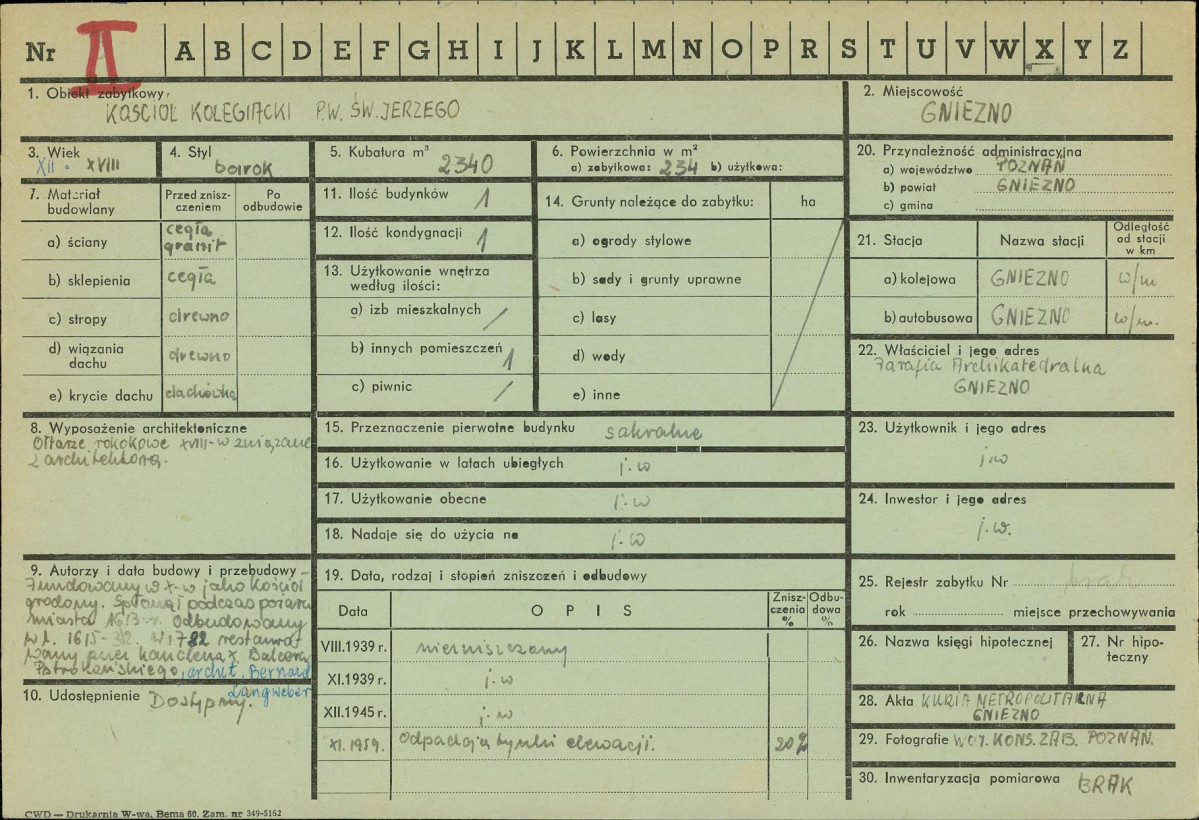 Nr II A B C D E F G H I J K L M N O P R S T U V W X Y Z
1. Obiekt zabytkowy
KOŚCIÓŁ KOLEGIACKI P.W. ŚW. JERZEGO
2. Miejscowość
GNIEZNO
3. Wiek
XII. XVIII
4. Styl
barok
5. Kubatura m³
2340
6. Powierzchnia w m²
a) zabytkowa: 234 b) użytkowa:
20. Przynależność administracyjna
a) województwo POZNAŃ
b) powiat GNIEZNO
c) gmina
7. Materiał budowlany
Przed znisz-
czeniem
Po
odbudowie
a) ściany
cegła
granit
b) sklepienia cegła
c) stropy drewno
d) wiązania
dachu drewno
e) krycie dachu dachówka
11. Ilość budynków 1
12. Ilość kondygnacji 1
13. Użytkowanie wnętrza
według ilości:
a) izb mieszkalnych /
b) innych pomieszczeń 1
c) piwnic /
14. Grunty należące do zabytku: ha
a) ogrody stylowe
b) sady i grunty uprawne
c) lasy
d) wody
e) inne
21. Stacja
Nazwa stacji
Odległość
od stacji
w km
a) kolejowa GNIEZNO w/m
b) autobusowa GNIEZNO w/m.
22. Właściciel i jego adres
Parafia Archikatedralna
GNIEZNO
8. Wyposażenie architektoniczne
Ołtarze rokokowe XVIII-w związane
z architekturą.
15. Przeznaczenie pierwotne budynku sakralne
16. Użytkowanie w latach ubiegłych j.w
17. Użytkowanie obecne j.w
18. Nadaje się do użycia na j.w
23. Użytkownik i jego adres
j.w
24. Inwestor i jego adres
j.w.
9. Autorzy i data budowy i przebudowy
Fundowany w X-w jako Kościół
grodowy. Spłonął podczas pożaru
miasta 1613 r. Odbudowany
w l. 1615-32. W 1782 restauro
wany przez kanclerza X.
archit. Bernard
Langweber
10. Udostępnienie Dostępny.
19. Data, rodzaj i stopień zniszczeń i odbudowy
Data
O P I S
Znisz-
czenia
%
Odbu-
dowa
%
VIII.1939 r. niezniszczony
XI.1939 r. j.w
XII.1945 r. j.w
XI.1959. Odpadają tynki elewacji. 20%
25. Rejestr zabytku Nr brak
rok miejsce przechowywania
26. Nazwa księgi hipotecznej
27. Nr hipo-
teczny
28. Akta KURIA METROPOLITARNA
GNIEZNO
29. Fotografie WOJ. KONS. ZAB. POZNAŃ.
30. Inwentaryzacja pomiarowa BRAK
CWD — Drukarnia W-wa, Bema 60. Zam. nr 349-5162